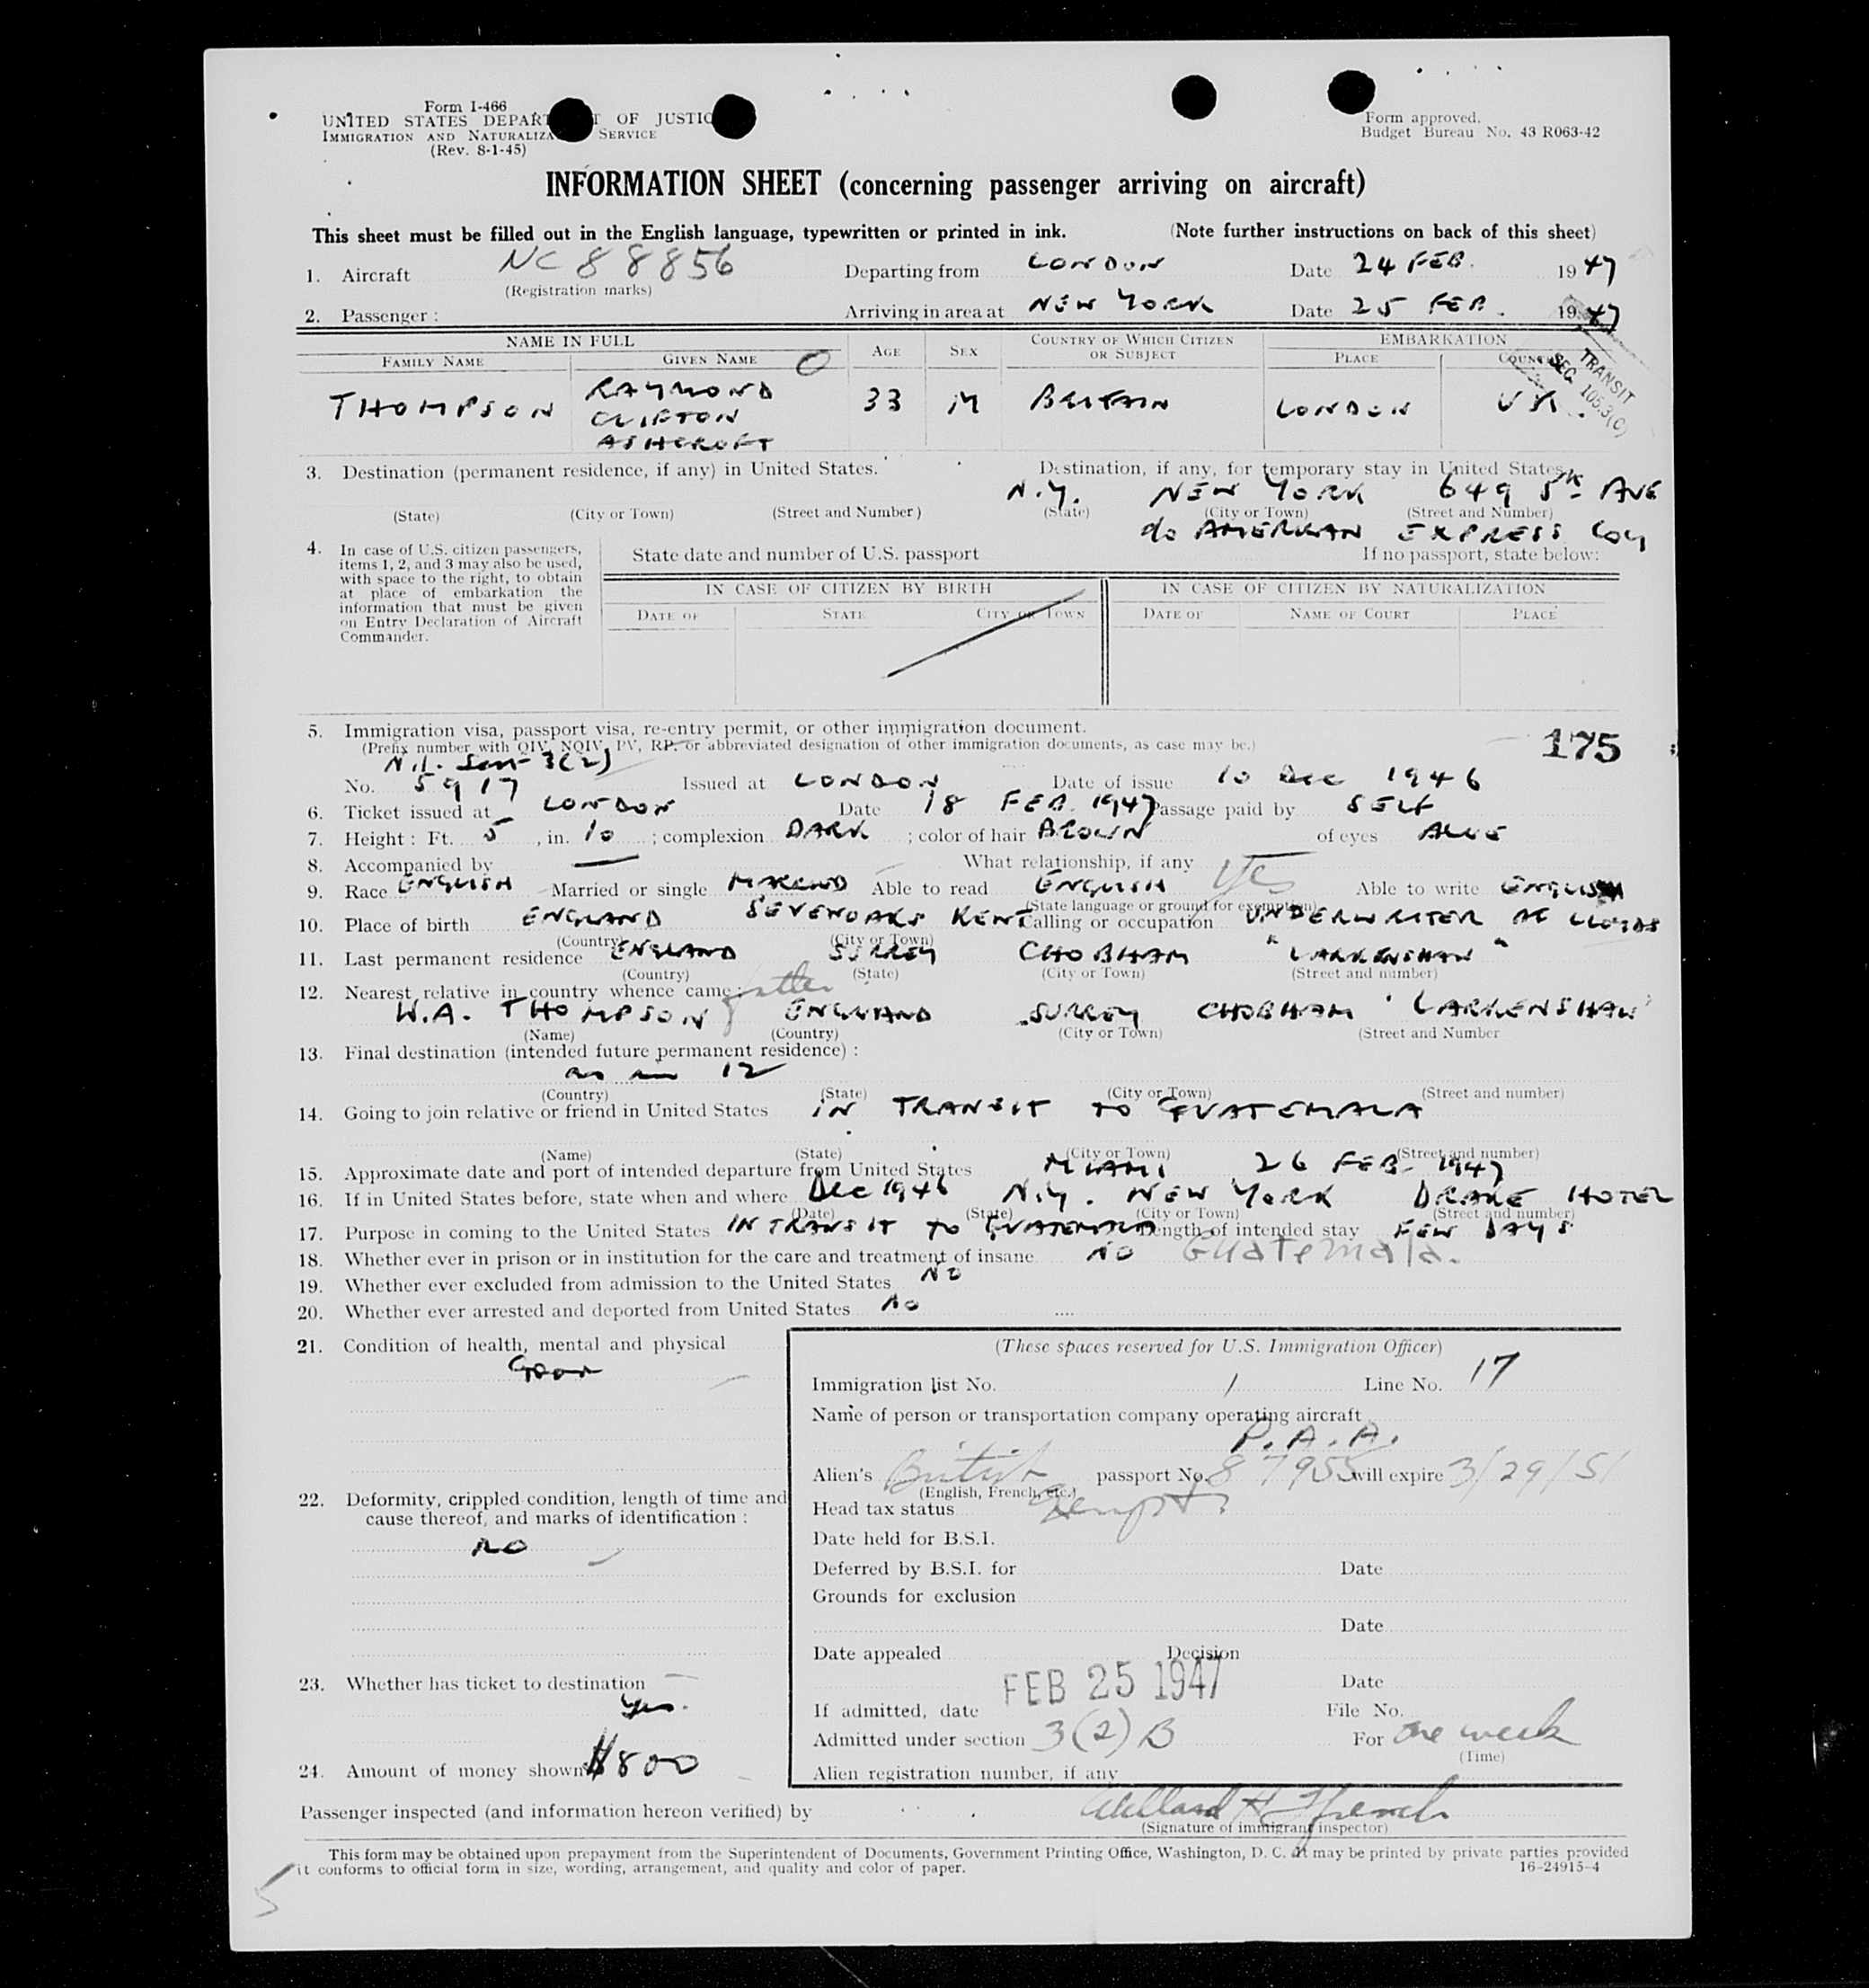 Form I-466
UNITED STATES DEPART T OF JUSTIC
IMMIGRATION AND NATURALIZA SERVICE
(Rev. 8-1-45)
Form approved.
Budget Bureau No. 43 R063-42
INFORMATION SHEET (concerning passenger arriving on aircraft)
This sheet must be filled out in the English language, typewritten or printed in ink. (Note further instructions on back of this sheet)
1. Aircraft NC 88856 Departing from LONDON Date 24 FEB. 1947
(Registration marks)
2. Passenger: Arriving in area at NEW YORK Date 25 FEB. 1947
NAME IN FULL AGE SEX COUNTRY OF WHICH CITIZEN OR SUBJECT EMBARKATION
FAMILY NAME GIVEN NAME PLACE COUNTRY
TRANSIT
SEC. 105.3(C)
THOMPSON RAYMOND CLIFTON ASHCROFT 33 M BRITAIN LONDON U.K.
3. Destination (permanent residence, if any) in United States. Destination, if any, for temporary stay in United States
N.Y. NEW YORK 649 5th AVE
(State) (City or Town) (Street and Number) (State) (City or Town) (Street and Number)
c/o AMERICAN EXPRESS Coy
4. In case of U.S. citizen passengers, items 1, 2, and 3 may also be used, with space to the right, to obtain at place of embarkation the information that must be given on Entry Declaration of Aircraft Commander.
State date and number of U.S. passport If no passport, state below:
IN CASE OF CITIZEN BY BIRTH IN CASE OF CITIZEN BY NATURALIZATION
DATE OF STATE CITY OR TOWN DATE OF NAME OF COURT PLACE
5. Immigration visa, passport visa, re-entry permit, or other immigration document.
(Prefix number with QIV, NQIV, PV, RP, or abbreviated designation of other immigration documents, as case may be.) 175
N.I. Sect 3(2)
No. 5917 Issued at LONDON Date of issue 10 Dec 1946
6. Ticket issued at LONDON Date 18 FEB. 1947 Passage paid by SELF
7. Height: Ft. 5, in. 10; complexion DARK; color of hair BROWN of eyes BLUE
8. Accompanied by — What relationship, if any —
9. Race ENGLISH Married or single MARRIED Able to read ENGLISH Yes Able to write ENGLISH
(State language or ground for exemption)
10. Place of birth ENGLAND SEVENOAKS KENT Calling or occupation UNDERWRITER AT LLOYDS
(Country) (City or Town)
11. Last permanent residence ENGLAND SURREY CHOBHAM "LARKENSHAW"
(Country) (State) (City or Town) (Street and number)
12. Nearest relative in country whence came: father
W.A. THOMPSON ENGLAND SURREY CHOBHAM 'LARKENSHAW'
(Name) (Country) (City or Town) (Street and Number
13. Final destination (intended future permanent residence):
as in 12
(Country) (State) (City or Town) (Street and number)
14. Going to join relative or friend in United States IN TRANSIT TO GUATEMALA
(Name) (State) (City or Town) (Street and number)
15. Approximate date and port of intended departure from United States MIAMI 26 FEB. 1947
16. If in United States before, state when and where Dec 1946 N.Y. NEW YORK DRAKE HOTEL
(Date) (State) (City or Town) (Street and number)
17. Purpose in coming to the United States IN TRANSIT TO GUATEMALA Length of intended stay FEW DAYS
18. Whether ever in prison or in institution for the care and treatment of insane NO Guatemala.
19. Whether ever excluded from admission to the United States NO
20. Whether ever arrested and deported from United States NO
21. Condition of health, mental and physical
GOOD
22. Deformity, crippled condition, length of time and cause thereof, and marks of identification:
NO
23. Whether has ticket to destination
Yes.
24. Amount of money shown $800
(These spaces reserved for U.S. Immigration Officer)
Immigration list No. 1 Line No. 17
Name of person or transportation company operating aircraft
P.A.A.
Alien's British passport No. 87955 will expire 3/29/51
(English, French, etc.)
Head tax status Exempt
Date held for B.S.I.
Deferred by B.S.I. for Date
Grounds for exclusion
Date
Date appealed Decision
Date
If admitted, date FEB 25 1947 File No.
Admitted under section 3(2)B For one week
(Time)
Alien registration number, if any
Passenger inspected (and information hereon verified) by Willard H. French
(Signature of immigrant inspector)
This form may be obtained upon prepayment from the Superintendent of Documents, Government Printing Office, Washington, D. C. It may be printed by private parties provided
it conforms to official form in size, wording, arrangement, and quality and color of paper. 16-24915-4
5